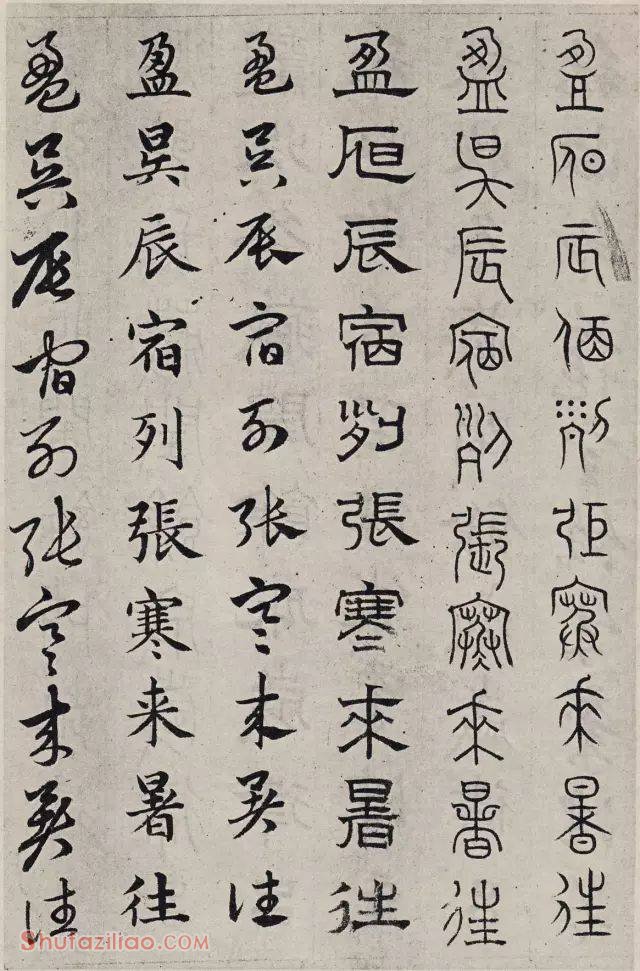 盈昃辰宿列張寒來暑往
盈昃辰宿列張寒來暑往
盈昃辰宿列張寒來暑往
盈昃辰宿列張寒來暑往
盈昃辰宿列張寒来暑往
盈昃辰宿列張寒來暑往
Shufaziliao.com